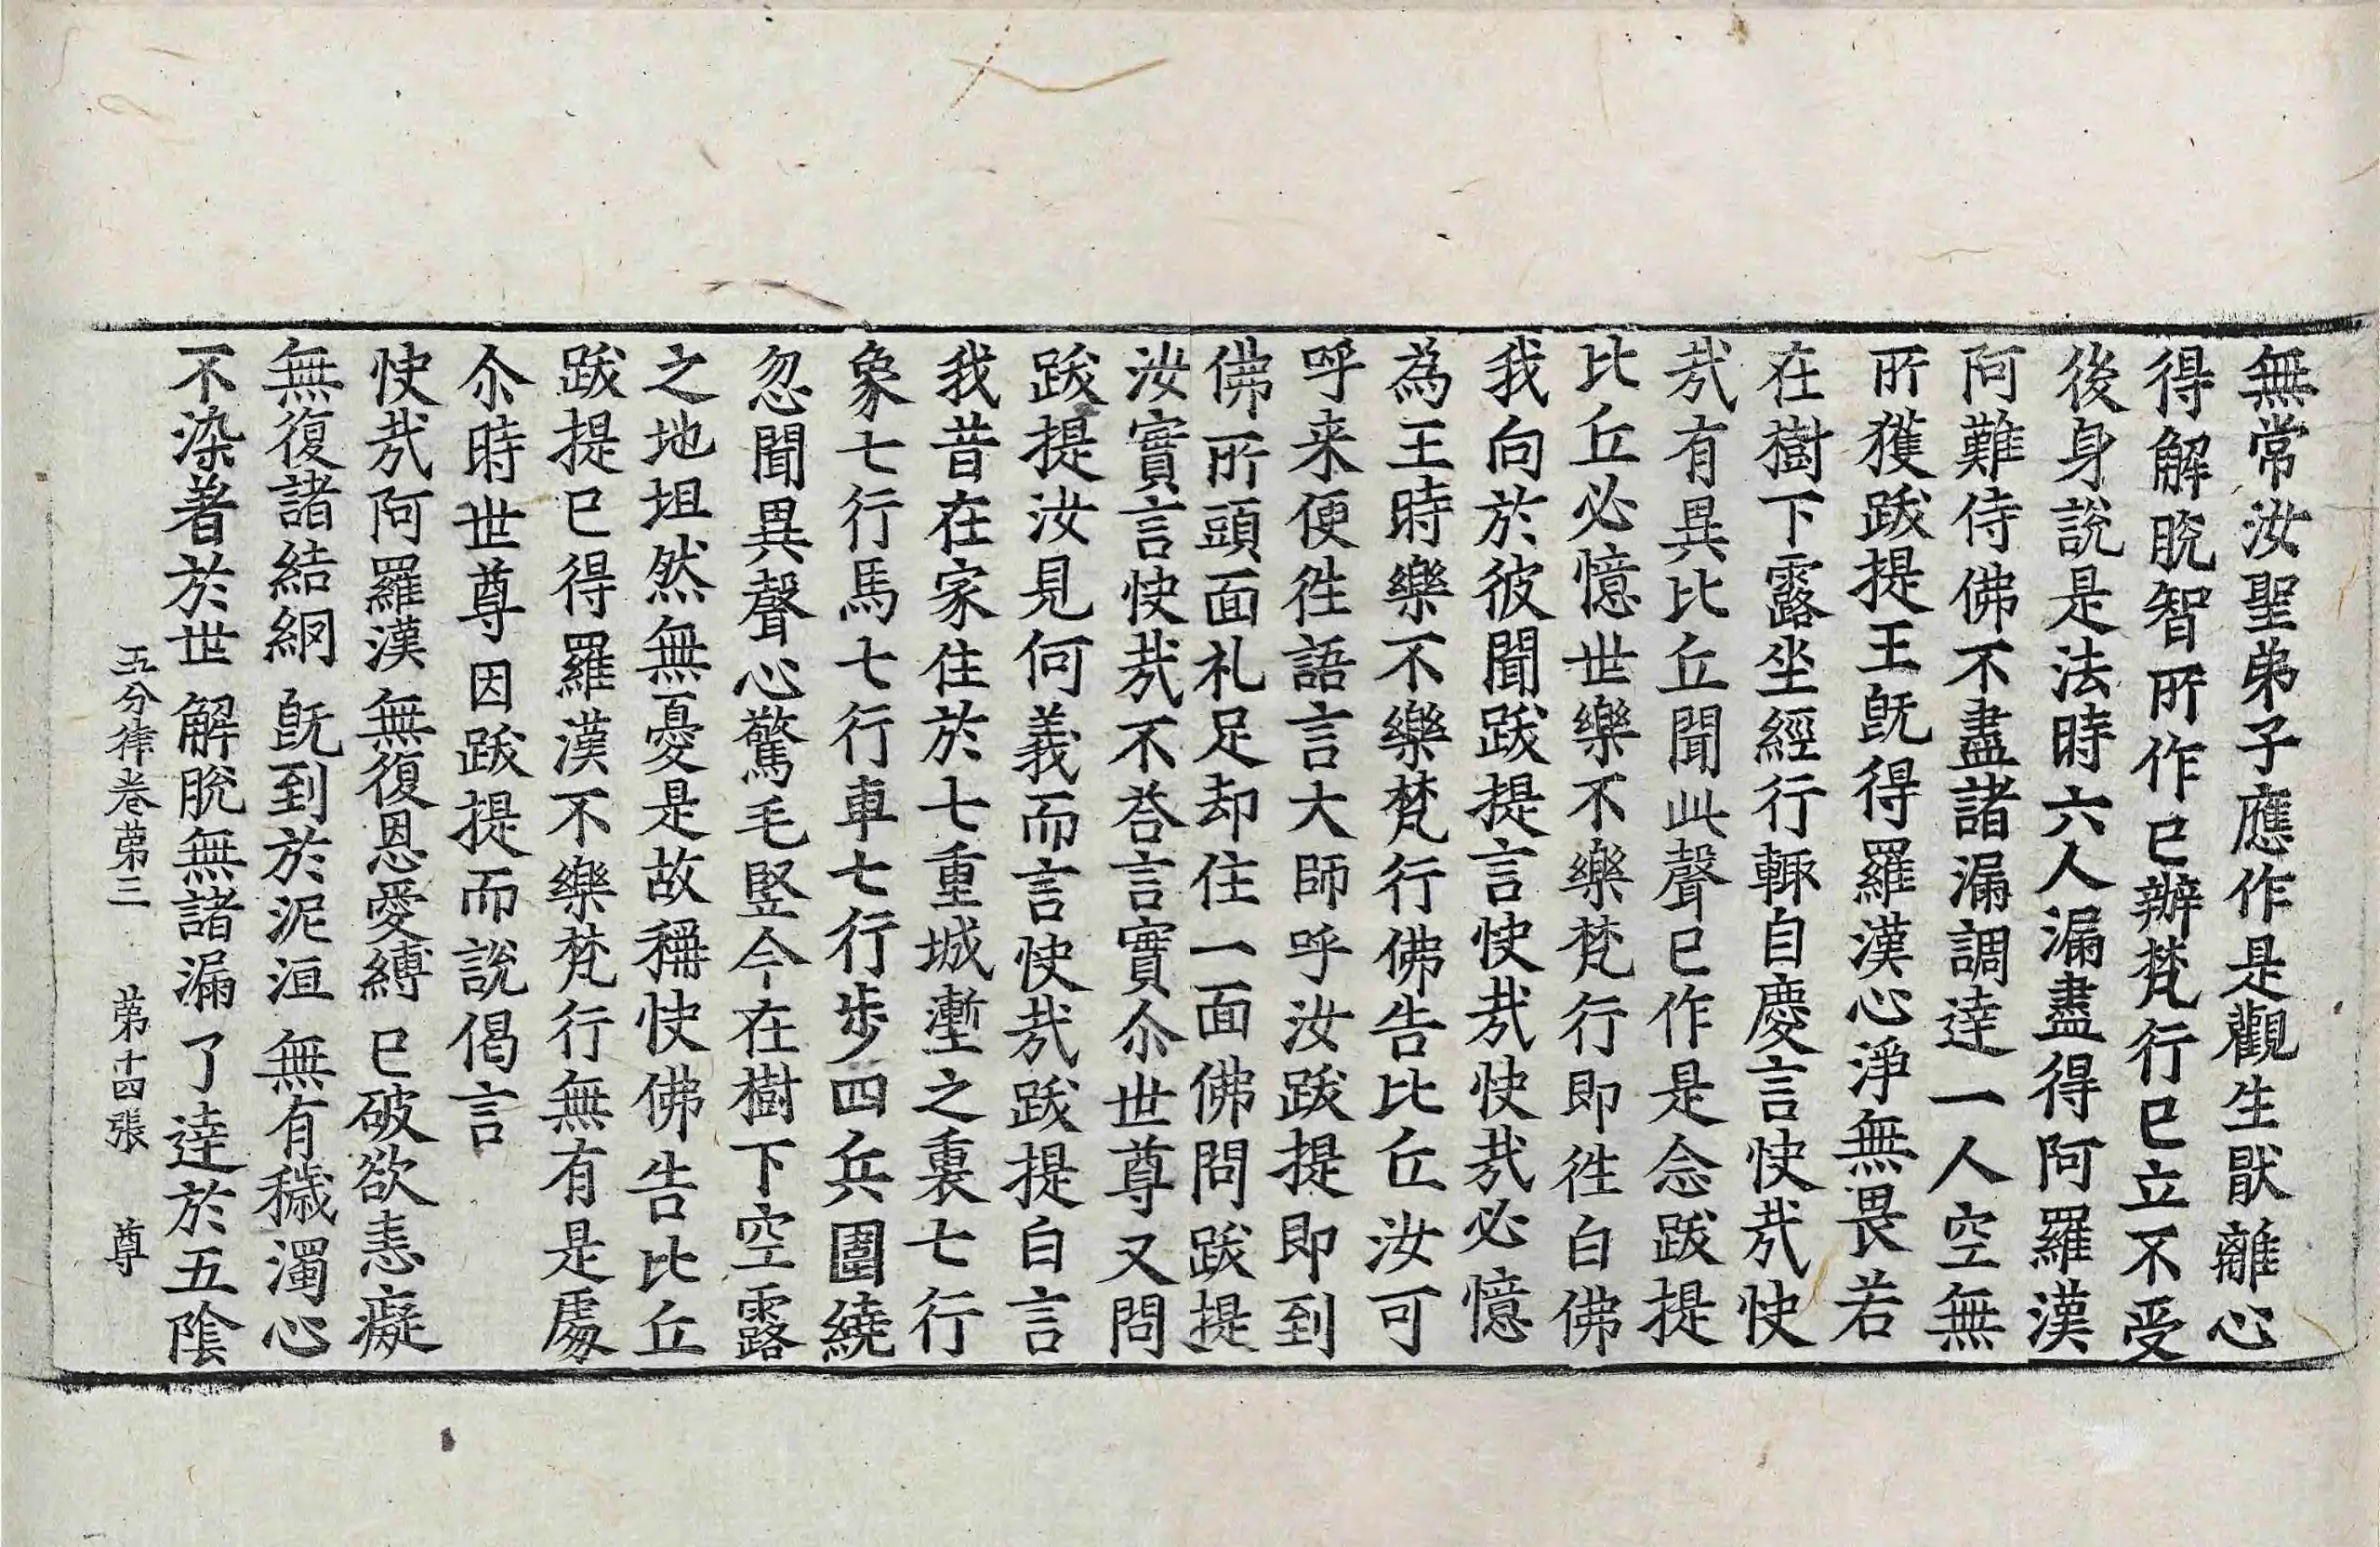 無常汝聖弟子應作是觀生猒離心
得解脫智所作已辦梵行已立不受
後身說是法時六人漏盡得阿羅漢
阿難侍佛不盡諸漏調達一人空無
所獲跋提王旣得羅漢心淨無畏若
在樹下露坐經行輙自慶言快哉快
哉有異比丘聞此聲已作是念跋提
比丘必憶世樂不樂梵行即徃白佛
我向於彼聞跋提言快哉快哉必憶
為王時樂不樂梵行佛告比丘汝可
呼来便徃語言大師呼汝跋提即到
佛所頭面礼足却住一面佛問跋提
汝實言快哉不荅言實尒世尊又問
跋提汝見何義而言快哉跋提白言
我昔在家住於七重城壍之裏七行
象七行馬七行車七行步四兵圍繞
忽聞異聲心驚毛竪今在樹下空露
之地坦然無憂是故稱快佛告比丘
跋提已得羅漢不樂梵行無有是處
尒時世尊因跋提而說偈言
快哉阿羅漢 無復恩愛縛 已破欲恚癡
無復諸結網 旣到於泥洹 無有穢濁心
不染著於世 解脫無諸漏 了達於五陰
五分律卷第三 第十四張 尊